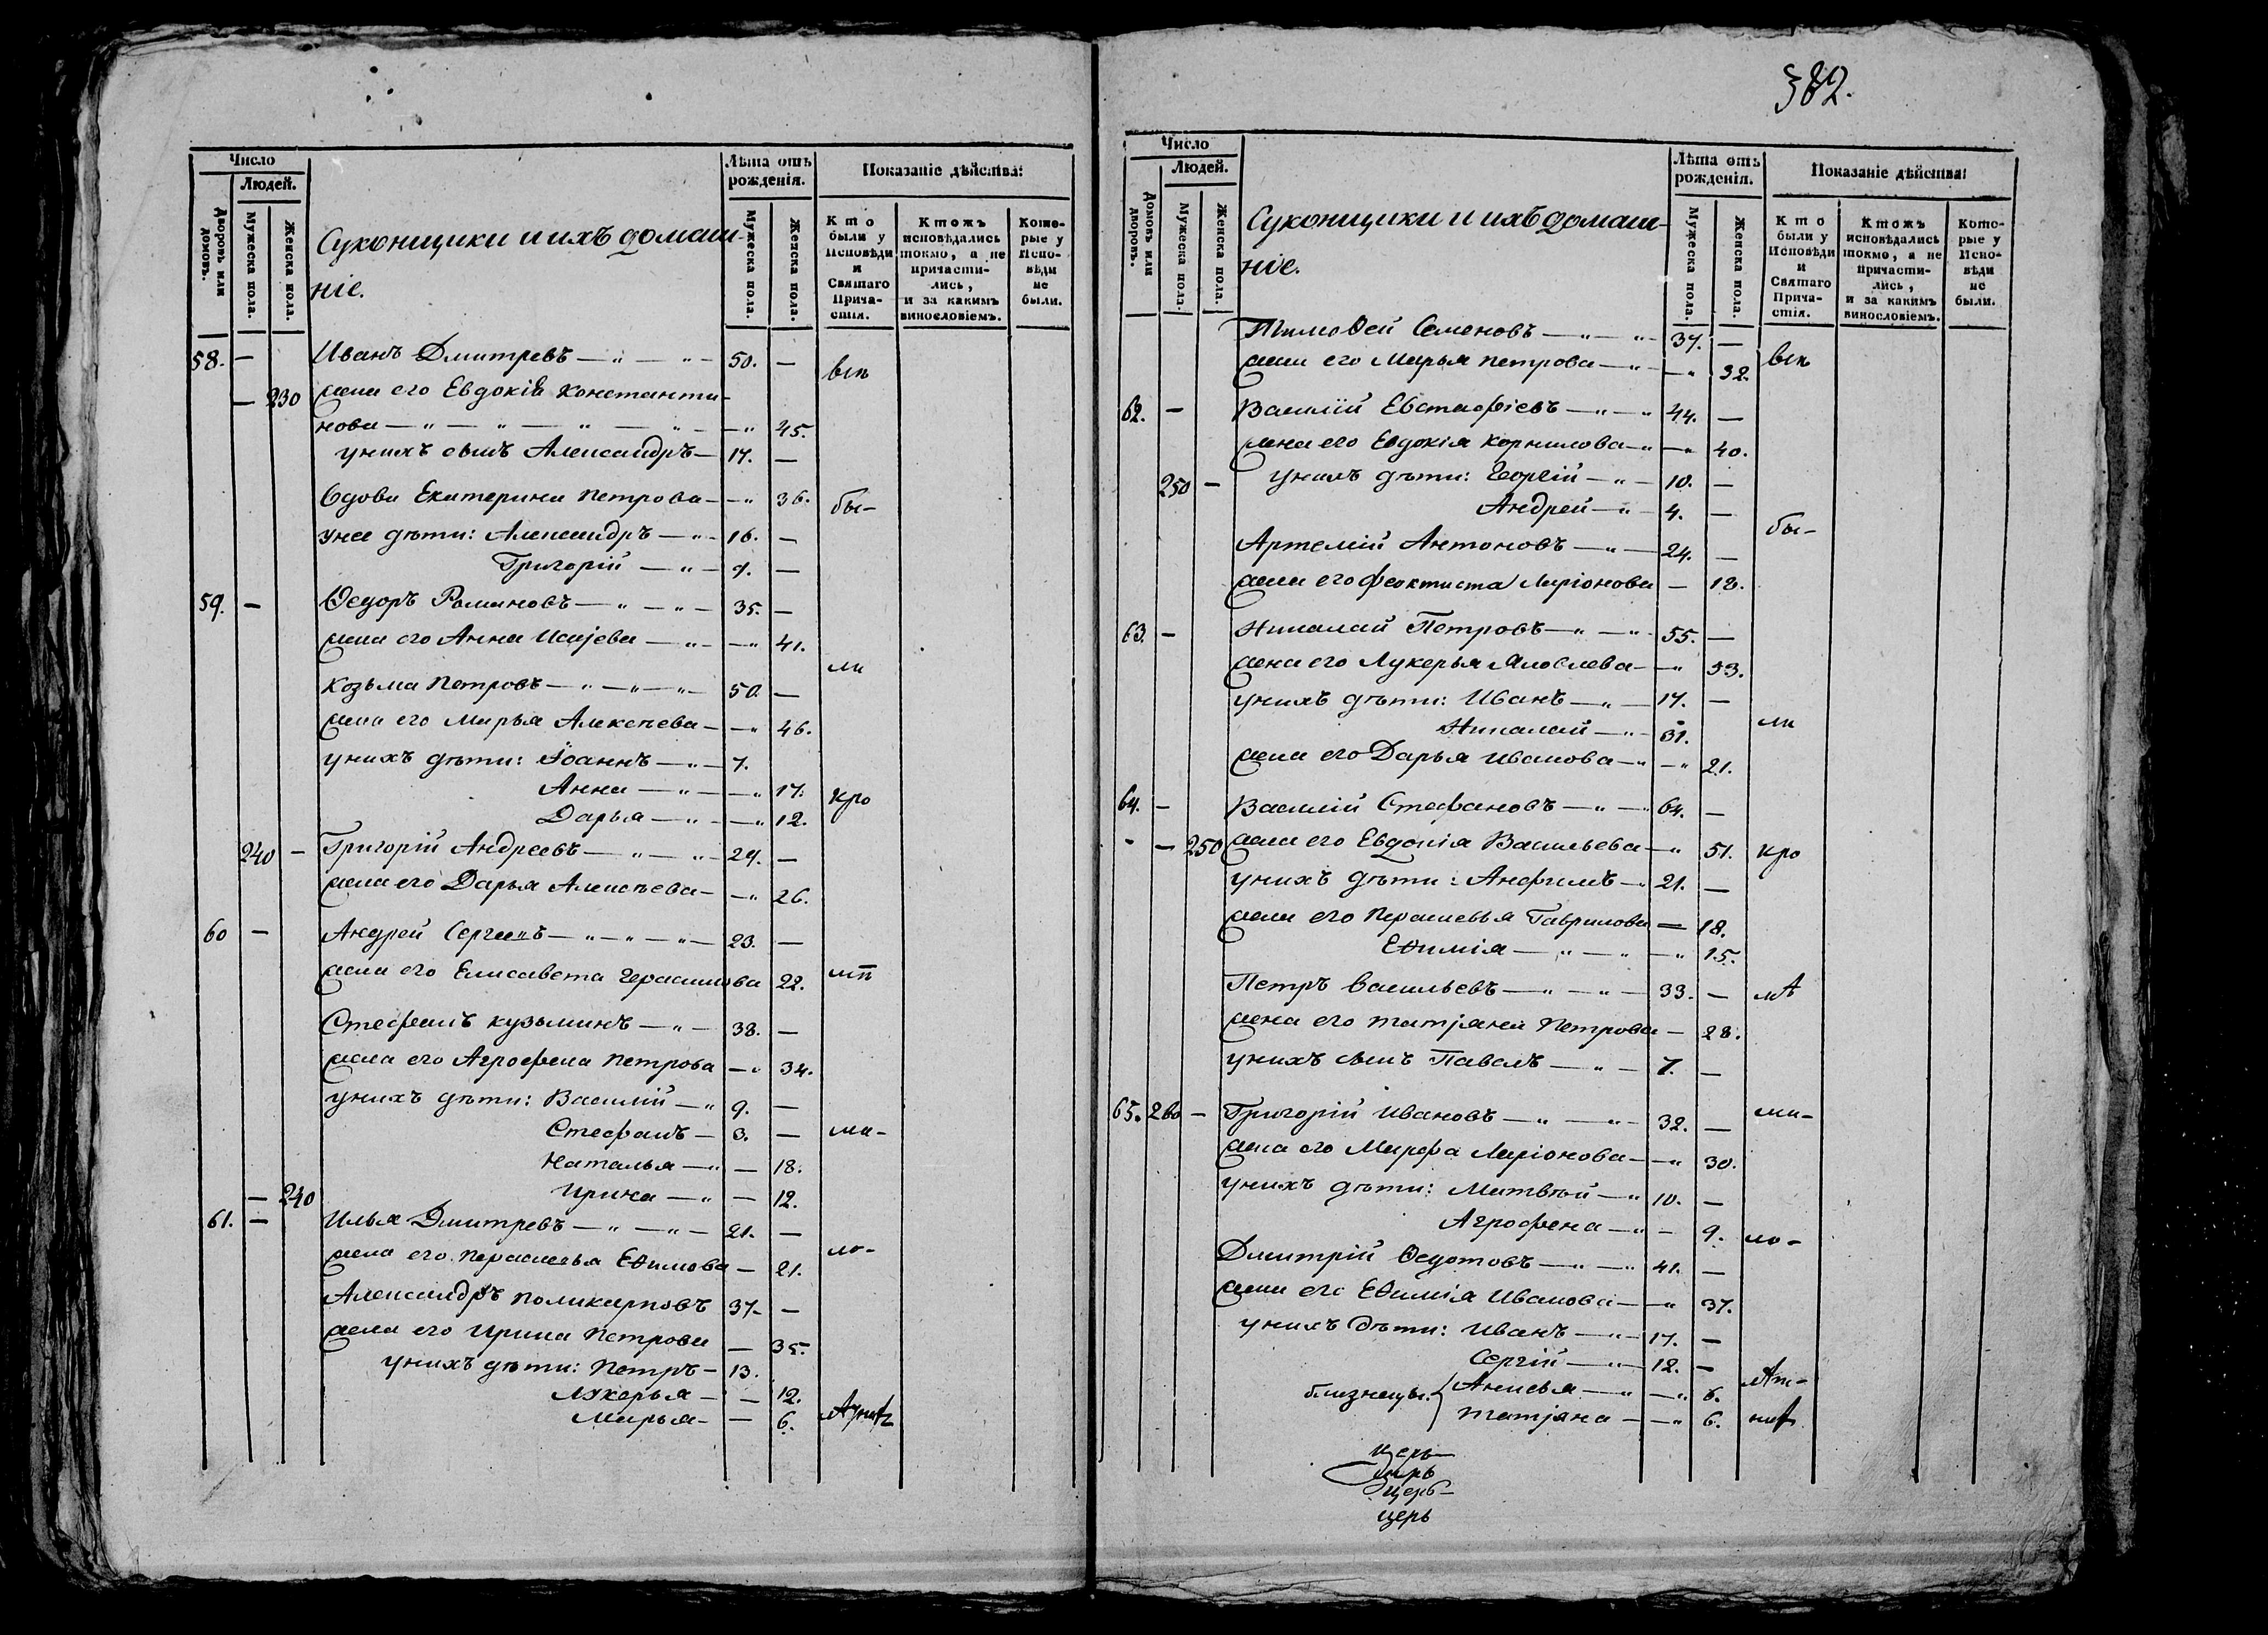 Число
Людей.
Дворовъ или домовъ.
Мужеска пола.
Женска пола.
Суконщики и ихъ домаш-
ніе.
Лѣта отъ рожденія.
Мужеска пола.
Женска пола.
Показаніе дѣйства:
Кто были у Исповѣди и Святаго Прича-стія.
Ктожъ исповѣдались токмо, а не причасти-лись, и за какимъ винословіемъ.
Кото-рые у Испо-вѣди не были.
58. — Иванъ Дмитревъ — „ — „ — 50. —
— 230 жена его Евдокія Константи-
нова — „ — „ — „ — „ — — „ 45.
у нихъ сынъ Александръ — 17. —
вдова Екатерина Петрова — — „ 36. бы-
у нее дѣти: Александръ — „ — 16. —
Григорій — „ — 9. —
59. — Ѳедоръ Романовъ — „ — „ — 35. —
жена его Анна Исаjева — „ — — „ 41.
ли
Козьма Петровъ — „ — „ — „ — 50. —
жена его Марья Алексѣева — — „ 46.
у нихъ дѣти: Іоаннъ — „ — 7.
Анна — „ — — „ 17. кро
Дарья — „ — — „ 12.
240 — Григорій Андреевъ — „ — „ — 29. —
жена его Дарья Алексѣева — — „ 26.
60 — Андрей Сергеевъ — „ — „ — „ — 23. —
жена его Елисавета Герасимова 22. мѣ
Стефанъ Кузьминъ — „ — 38. —
жена его Агрофена Петрова — „ 34.
у нихъ дѣти: Василій — „ 9. —
Стефанъ — 3. — ма-
Наталья — „ — 18.
— 240 Ирина — „ — 12.
61. — Илья Дмитревъ — „ — „ — 21. —
жена его Парасковья Еѳимова — 21. ло-
Александръ Поликарповъ 37. —
жена его Ирина Петрова — 35.
у нихъ дѣти: Петръ — 13.
Лукерья — — 12.
Марья — — 6.
382.
Число
Людей.
Домовъ или дворовъ.
Мужеска пола.
Женска пола.
Суконщики и ихъ домаш-
ніе.
Лѣта отъ рожденія.
Мужеска пола.
Женска пола.
Показаніе дѣйства:
Кто были у Исповѣди и Святаго Прича-стія.
Ктожъ исповѣдались токмо, а не причасти-лись, и за какимъ винословіемъ.
Кото-рые у Испо-вѣди не были.
Тимоѳей Семеновъ — „ — „ — 37. —
жена его Марья Петрова — „ — „ 32.
62. — Василій Евстафіевъ — „ — „ 44. —
жена его Евдокія Корнилова — „ — „ 40.
250 — у нихъ дѣти: Георгій — „ — 10. —
Андрей — „ — 4. —
бы-
Артемій Антоновъ — „ — 24. —
жена его Феоктиста Ларіонова — 18.
63. — Николай Петровъ — „ — „ — 55. —
жена его Лукерья — „ 53.
у нихъ дѣти: Иванъ — „ — 17. —
Николай — „ — 31. ли
жена его Дарья Иванова — „ — „ 21.
64. — Василій Стефановъ — „ — „ 64. —
— 250 жена его Евдокія Васильева — „ 51. кро
у нихъ дѣти: Анфимъ — „ 21. —
жена его Парасковья Гаврилова — 18.
Еѳимія — „ — „ — „ 15.
Петръ Васильевъ — „ — „ — 33. — мѣ
жена его Татjяна Петрова — 28.
у нихъ сынъ Павелъ — „ — 7. —
65. 260 — Григорій Ивановъ — „ — „ — 32. — ма-
жена его Марфа Ларіонова — „ 30.
у нихъ дѣти: Матвѣй — „ 10. —
Агрофена — „ — 9. ло-
Дмитрій Ѳедотовъ — „ — „ 41. —
жена его Еѳимія Иванова — „ 37.
у нихъ дѣти: Иванъ — „ — 17. —
Сергій — „ — 12. —
близнецы: { Анисья — „ — „ 6. лѣт-
Татjяна — — „ 6.
церь
церь
церь